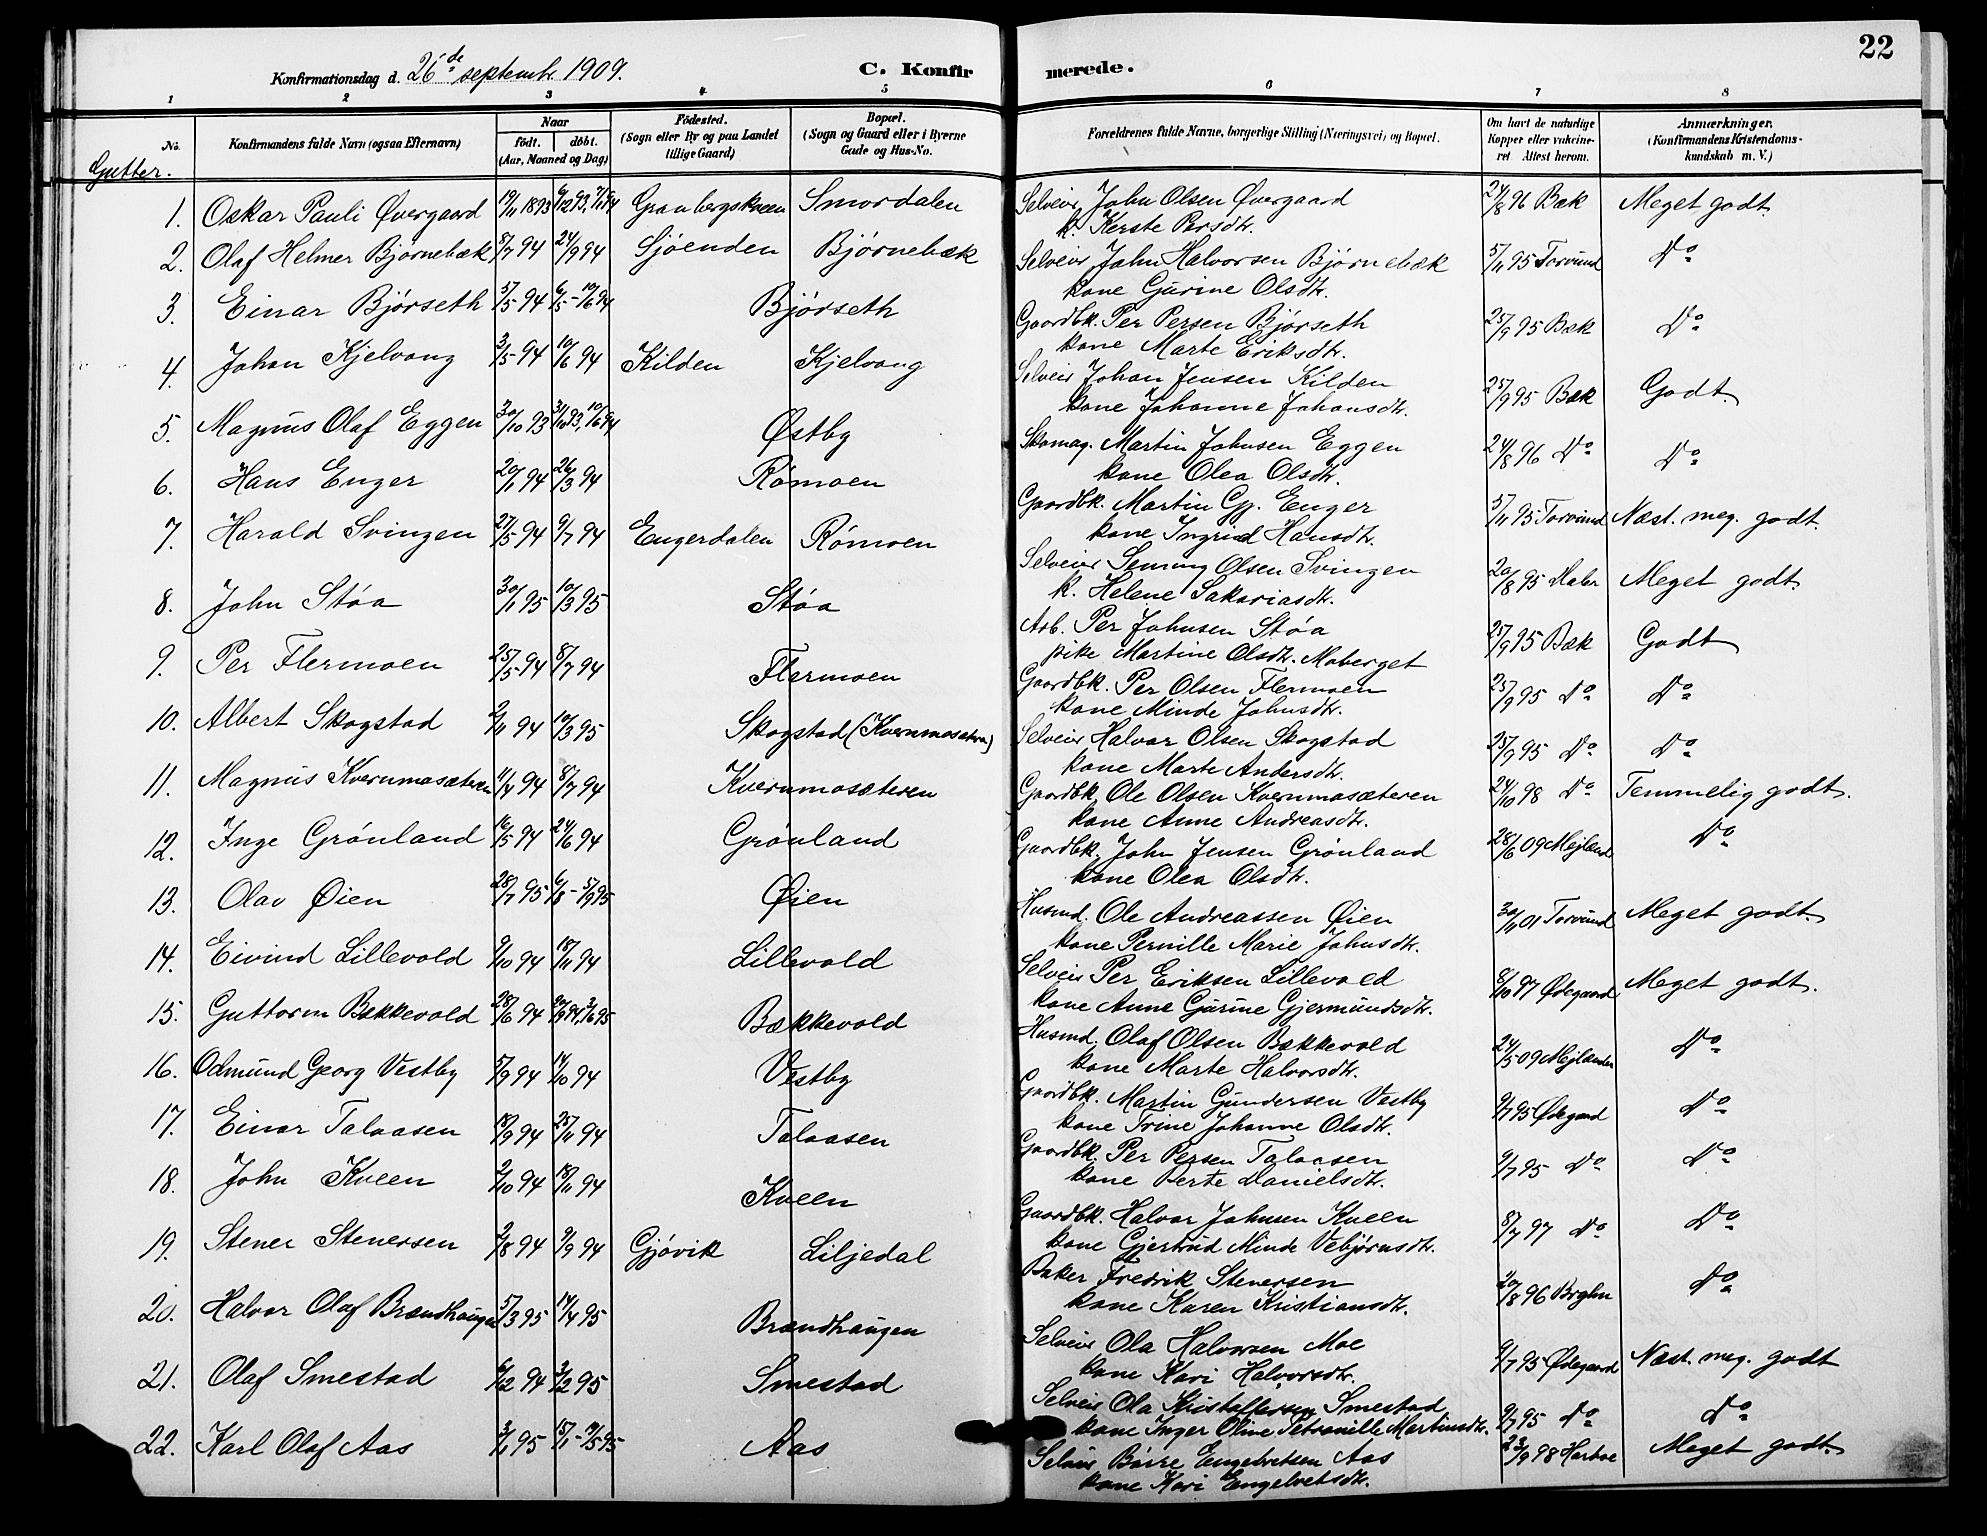 22
Konfirmationsdag d. 26de septembr 1909.
C. Konfirmerede.
1 2 3 4 5 6 7 8
No. Konfirmandens fulde Navn (ogsaa Efternavn) Naar födt. döbt. (Aar, Maaned og Dag) Födested. (Sogn eller By og paa Landet tillige Gaard) Bopæl. (Sogn og Gaard eller i Byerne Gade og Hus-No. Forældrenes fulde Navne, borgerlige Stilling (Næringsvei) og Bopæl. Om havt de naturlige Kopper eller vakcineret Attest herom. Anmærkninger. (Konfirmandens Kristendomskundskab m. V.)
Gutter.
1. Oskar Pauli Øvergaard 19/11 1893 Granbergskveen Smordalen Selveier John Olsen Øvergaard 24/8 96 Bæk Meget godt
k. Kerste Persdtr.
2. Olaf Helmer Bjørnebæk 8/7 94 24/9 94 Sjøenden Bjørnebæk Selveier John Halvorsen Bjørnebæk 5/11 95 Torvund Do
kone Gurine Olsdtr.
3. Einar Bjørseth 5/5 94 6/5 - 10/6 94 Bjørseth Gaardbk. Per Persen Bjørseth 25/9 95 Bæk Do
kone Marte Eriksdtr.
4. Johan Kjelvang 3/5 94 10/6 94 Kilden Kjelvang Selveier Johan Jensen Kilden 25/9 95 Bæk Godt.
kone Johanne Johansdtr.
5. Magnus Olaf Eggen 30/10 93 31/10 93, 10/6 94 Østby Skomag. Martin Johnsen Eggen 24/8 96 Do Do
kone Olea Olsdtr.
6. Hans Enger 20/1 94 26/3 94 Rømoen Gaardbk. Martin G. Enger 5/11 95 Torvund Næst. meg. godt.
kone Ingrid Hansdtr.
7. Harald Svingen 27/5 94 9/7 94 Engerdalen Rømoen Selveier Seming Olsen Svingen 20/8 95 Meget godt.
k. Helene Sakariasdtr.
8. John Støa 30/1 95 10/3 95 Støa Arb. Per Johnsen Støa 25/9 95 Bæk Godt
pike Martine Olsdtr. Moberget
9. Per Flermoen 25/5 94 8/7 94 Flermoen Gaardbk. Per Olsen Flermoen 25/9 95 Do Do
kone Minde Johnsdtr.
10. Albert Skogstad 2/11 94 10/3 95 Skogstad (Kvernmosætra) Selveier Halvor Olsen Skogstad 25/9 95 Do Do
kone Marte Andersdtr.
11. Magnus Kvernmosæteren 11/4 94 8/7 94 Kvernmosæteren Gaardbk Ole Olsen Kvernmosæteren 24/10 98 Do Temmelig godt.
kone Anne Andreasdtr.
12. Inge Grønland 16/5 94 24/6 94 Grønland Gaardbk. John Jensen Grønland 28/6 09 Mejlænd Do
kone Olea Olsdtr.
13. Olav Øien 28/7 95 6/8 - 5/9 95 Øien Husmd. Ole Andreassen Øien 30/11 01 Torvund Meget godt
kone Pernille Marie Johnsdtr.
14. Eivind Lillevold 9/10 94 18/11 94 Lillevold Selveier Per Eriksen Lillevold 8/10 97 Ødegaard Meget godt.
kone Anne Gurine Gjermundsdtr.
15. Guttorm Bækkevold 28/6 94 Bækkevold Husmd. Olaf Olsen Bækkevold 24/5 09 Mejlænder Do
kone Marte Halvorsdtr.
16. Odmund Georg Vestby 5/9 94 14/10 94 Vestby Gaardbk. Martin Gundersen Vestby 9/7 95 Ødegaard Do
kone Trine Johanne Olsdtr.
17. Einar Talaasen 18/9 94 25/11 94 Talaasen Gaardbk. Per Persen Talaasen 9/7 95 Do Do
kone Berte Danielsdtr.
18. John Kveen 2/10 94 18/11 94 Kveen Gaardbk. Halvor Johnsen Kveen 8/7 97 Do Do
kone Gjertrud Minde Vebjørnsdtr.
19. Stener Stenersen 2/8 94 9/9 94 Gjøvik Liljedal Baker Fredrik Stenersen 20/8 96 Do
kone Karen Kristiansdtr.
20. Halvor Olaf Brændhaugen 5/3 95 14/4 95 Brændhaugen Selveier Ola Halvorsen Moe 9/7 95 Ødegaard Næst. meg. godt
kone Kari Halvorsdtr.
21. Olaf Smestad 6/12 94 3/2 95 Smestad Selveier Ola Kristoffersen Smestad 9/7 95 Do Do
kone Inger Oline Petronille Martinsdtr.
22. Karl Olaf Aas 3/1 95 Aas Selveier Børre Engebretsen Aas 23/9 98 Meget godt.
kone Kari Engebretsdtr.